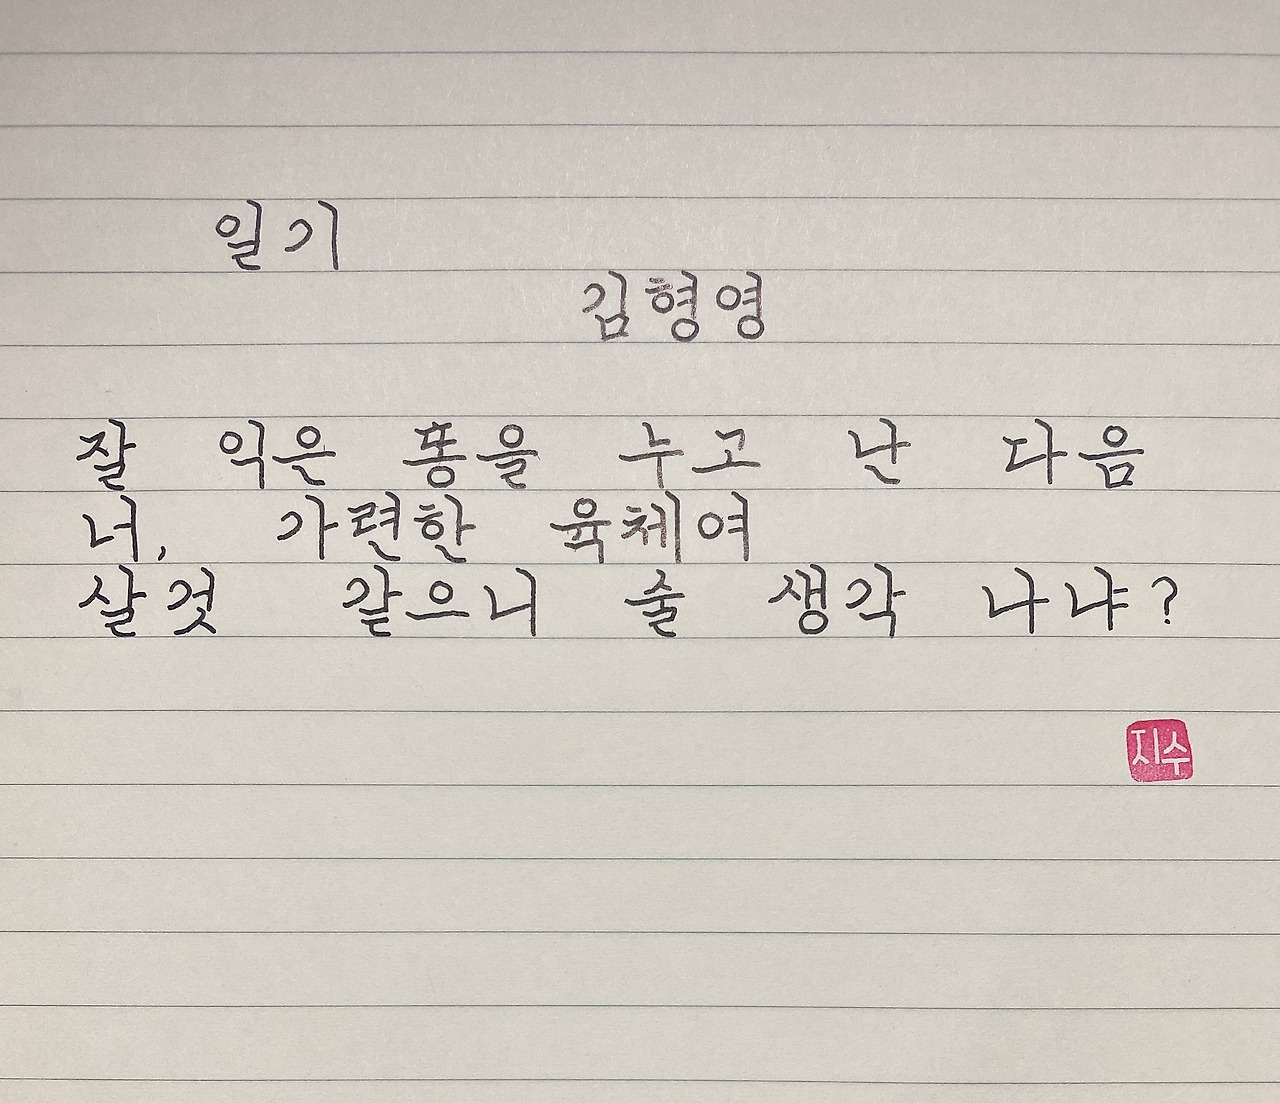 일기
김형영
잘 익은 똥을 누고 난 다음
너, 가련한 육체여
살것 같으니 술 생각 나냐?
지수